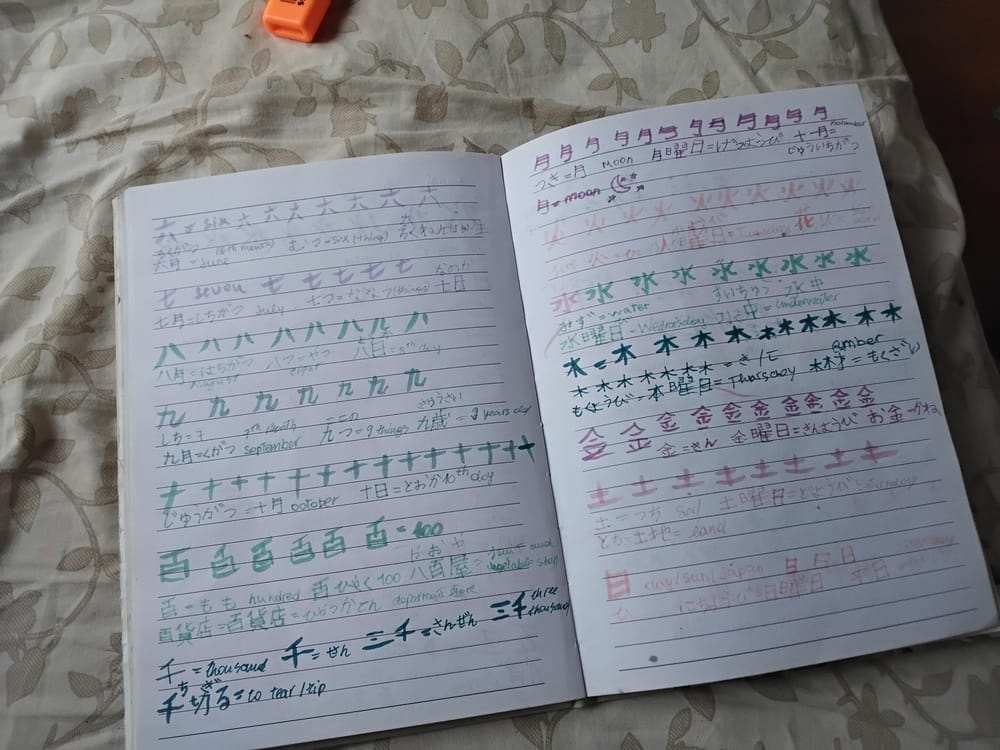 六 = six 六 六 六 六 六 六
六月 = June (6th month) むっつ = six (things)
七 seven 七 七 七 七 七
七月 = しちがつ July 七つ = ななつ (things) 七日
八 八 八 八 八 八 八 八
八月 = はちがつ 八つ = やっつ 八日 = 8th day
August eight
九 九 九 九 九 九 九
きゅうさい
九月 = くがつ September 九つ = 9 things 九歳 = 9 years old
十 十 十 十 十 十 十 十 十 十 十 十
じゅうがつ = 十月 october 十日 = とおか 10th day
百 百 百 百 百 百 = 100
百 = もも hundred 百 ひゃく 100 八百屋 = fruit and vegetable shop
百貨店 = 百貨店 = ひゃっかてん department store
千 = thousand 千 = せん 三千 = さんぜん 三千 three thousand
千切る = to tear/rip
月 月 月 月 月 月 月 月 月 月 月
つき =月 moon 月曜日 = げつようび 十一月 = november
じゅういちがつ
月 = moon
火 火 火 火 火 火 火 火 火
火曜日 = Tuesday 花火
水 水 水 水 水 水 水 水
みず = water すいちゅう 水中
水曜日 = Wednesday 水中 = underwater
木 = 木 木 木 木 木 木 木 木 木 木
木 木 木 木 木 木 木 = き/モ
もくようび = 木曜日 = Thursday 木材 = もくざい
金 金 金 金 金 金 金 金 金
金 = きん 金曜日 = きんようび お金 = かね
土 土 土 土 土 土 土
土 = つち soil 土曜日 = どようび
とち = 土地 = land
日 day/sun/Japan 日 日 日
にちようび = 日曜日